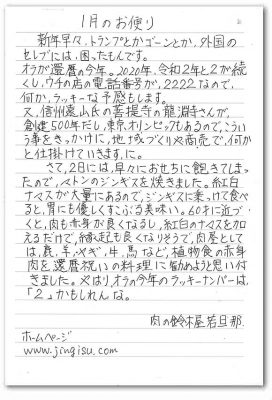 1月のお便り
新年早々、トランプとかゴーンとか、外国の
セレブには、困ったもんです。
オラが還暦の今年。2020年、令和2年と2が続
くし、ウチの店の電話番号が、2222なので、
何か、ラッキーな予感もします。
又、信州遠山氏の菩提寺の龍淵寺さんが、
創建500年だし、東京オリンピックもあるので、こうい
う事をきっかけに、地域づくりや商売で、何か
と仕掛けていきますに。
さて、2日には、早々におせちに飽きてしまっ
たので、マトンのジンギスを焼きました。紅白
ナマスが大量にあるので、ジンギスに乗っけて食べ
ると、胃にも優しくすこぶる美味い。60才に近づ
くと、肉も赤身が良くなるし、紅白のナマスを加
えるだけで、縁起も良くなりそうで、肉屋として
は、鹿、羊、ヤギ、牛、馬など、植物食の赤身
肉を還暦祝いの料理に勧めようと思い付
きました。やはり、オラの今年のラッキーナンバーは、
「2」かもしれんな。
肉の鈴木屋若旦那
ホームページ
www.jingisu.com